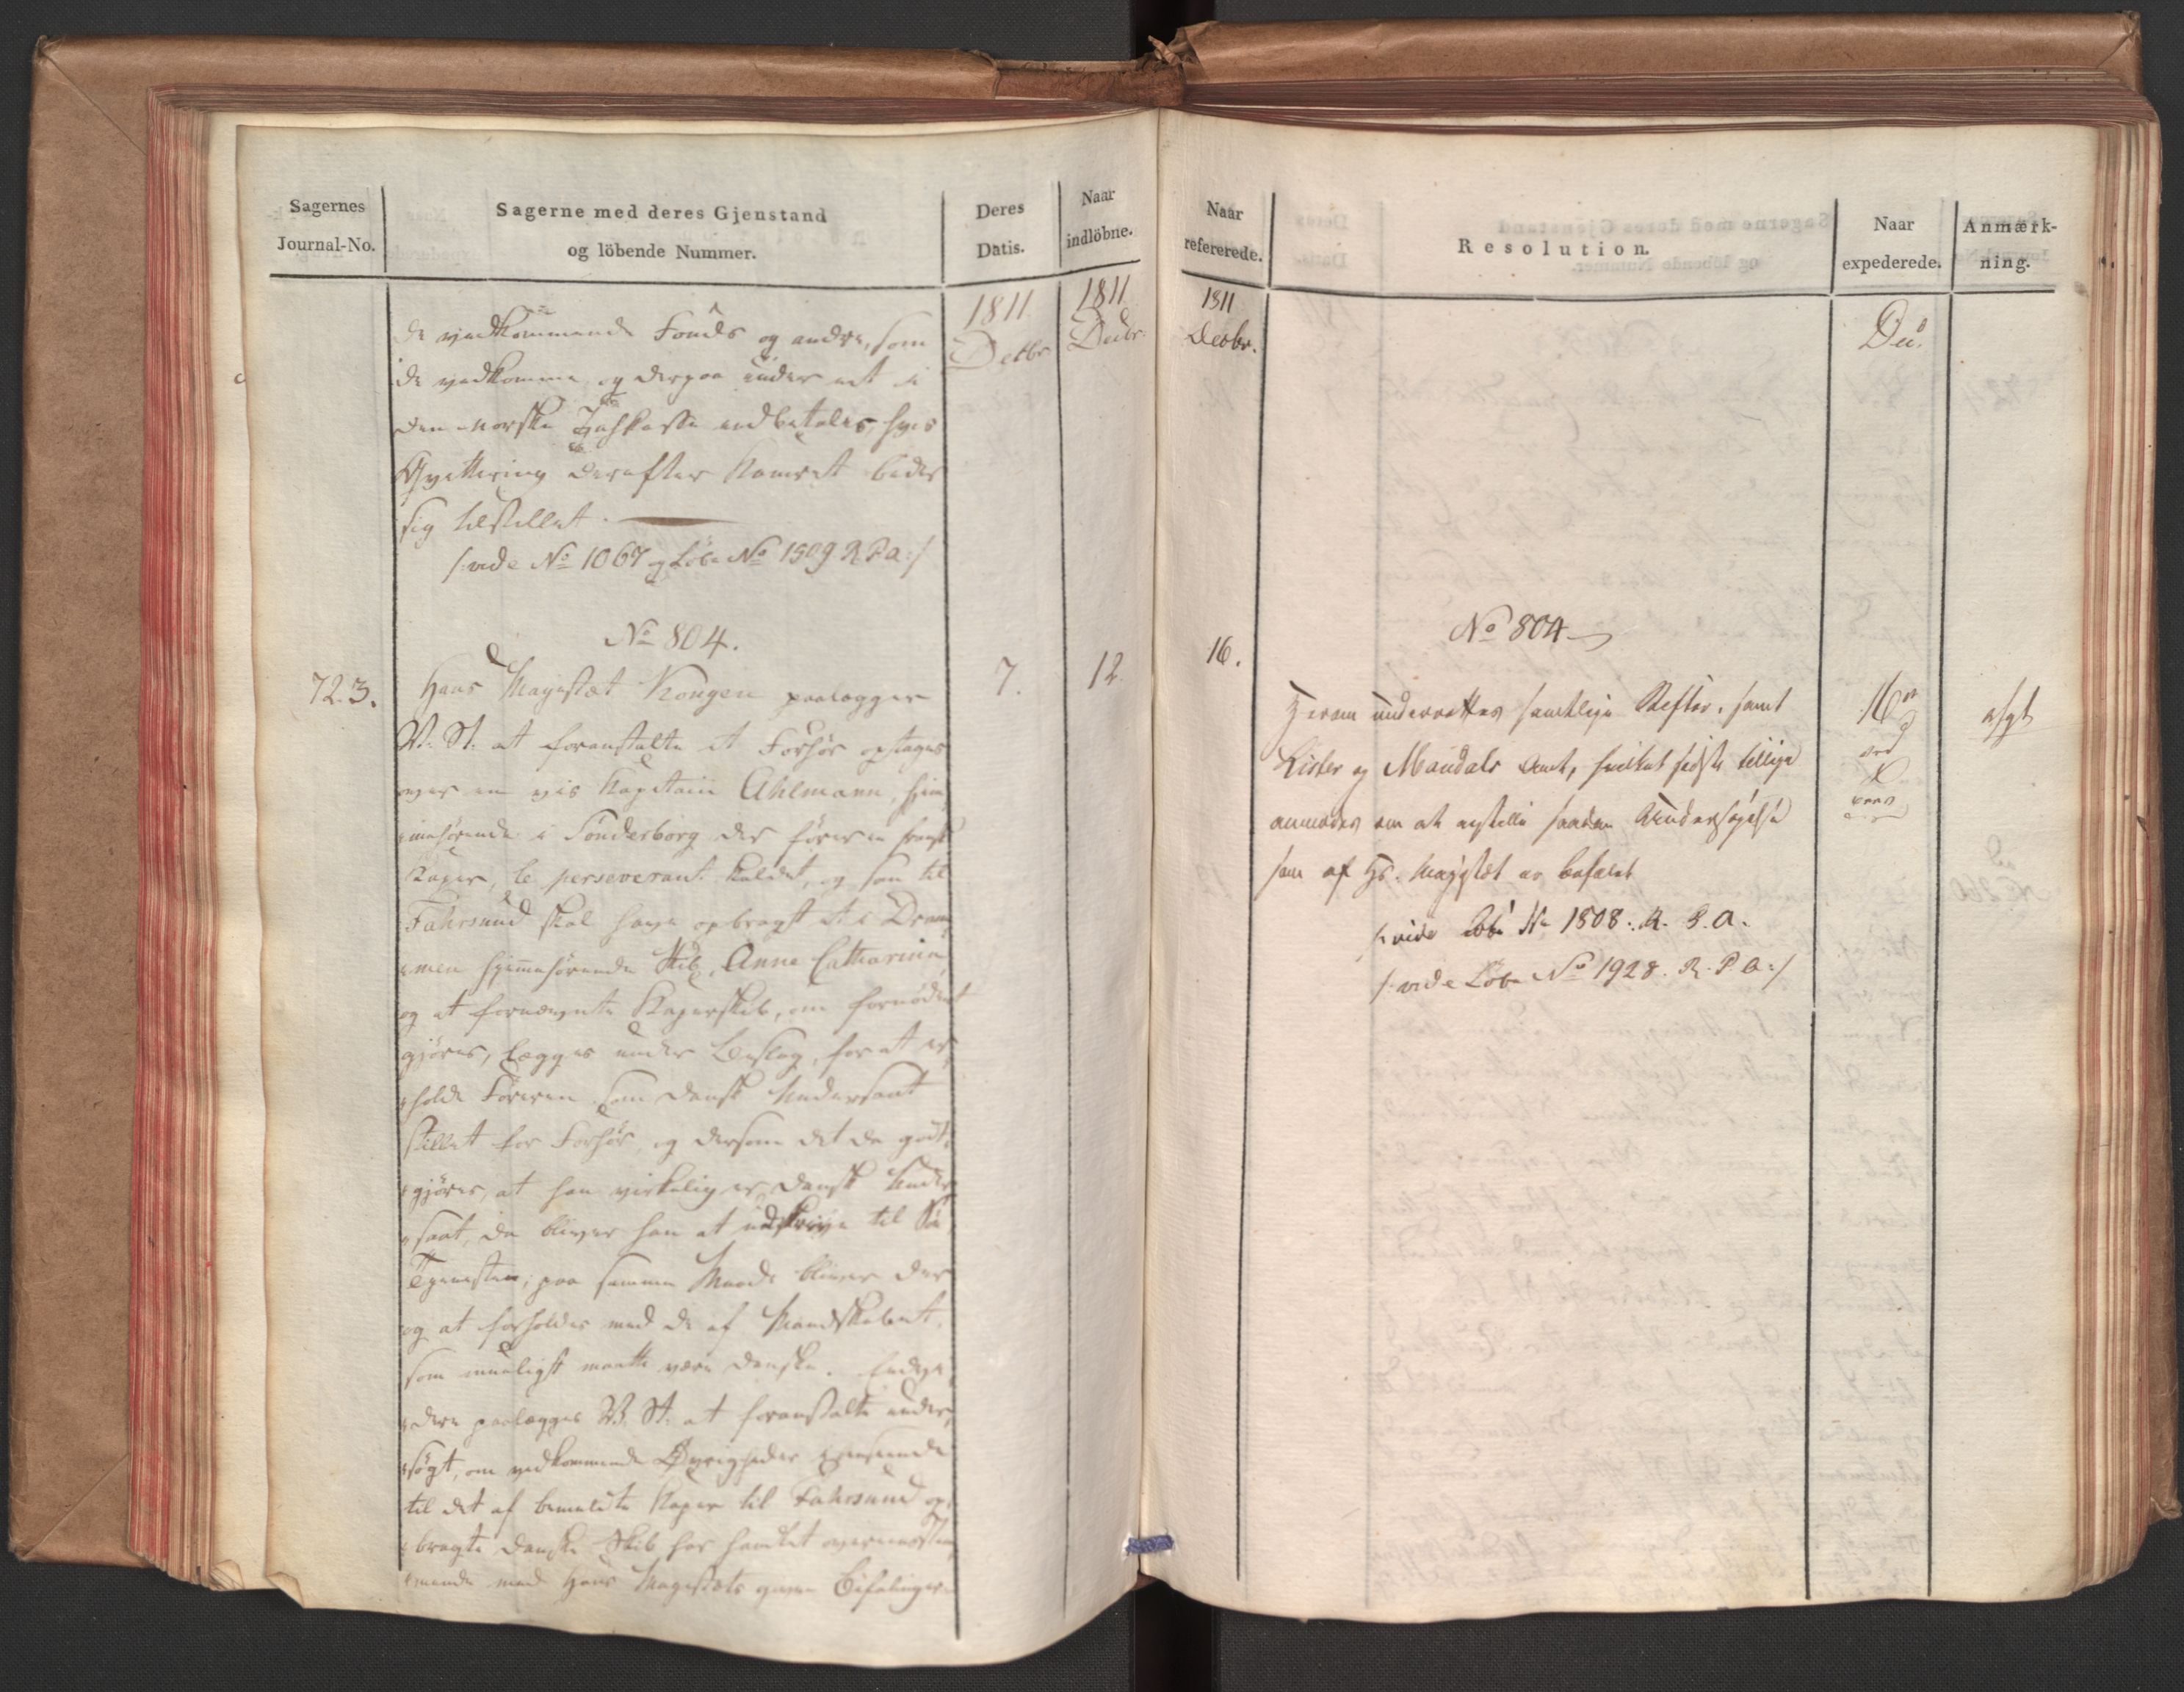 Sagernes
Journal-No.
Sagerne med deres Gjenstand
og löbende Nummer.
Deres
Datis.
Naar
indlöbne.
1811
Decbr
1811
Decbr:
de vedkommende Fonds og andre, som
de vedkomme og derpaa inder at i
den norske Zahlkasse indbetales, hvis
Qvittering derefter Kamret beder
sig tilstillet.
/: vide No 1067 og Löbe No 1509 R. P. a :/
No 804.
723.
Hans Majestæt Kongen paalægger
7.
12
V: St: at foranstalte et Forhör optages
over en vis Kapitain Ahlmann, hjem
mehörende i Sonderborg der förer en fransk
Kaper, le perseverant kaldet, og som til
Fahrsund skal have opbragt et i Dram
men hjemmehörende Skib, Anna Catharina
og at fornævnte Kaperskib, om fornödent
gjöres, lægges under Beslag, for at er
holde Föreren som dansk Undersaat
stillet for Forhör, og dersom det da godt
gjöres, at han virkelig er dansk Under
saat, da bliver han at udskrive til Sö
Tjenesten; paa samme Maade bliver der
og at forholdes med de af Mandskabet,
som mueligst maatte være danske. Endvi
dere paalægges V. St: at foranstalte under
sögt, om vedkommende Övrigheder henseende
til det af bemeldte Kaper til Fahrsund op
bragte danske Skib har handlet overensstem
mende med Hans Majestæts givne Befalinger
Naar
refererede.
Resolution.
Naar
expederede.
Anmærk-
ning.
1811
Decbr.
No 804
16.
Herom underrettes samtlige Stiftö. samt
Lister og Mandals Amt, hvilket sidste tillige
anmodes om at anstille saadan Undersögelse
som af Hs. Majestæt er befalet
/: vide Löbe No 1508. R. P. A.
/: vide Löbe No 1928. R. P. A :/
16
afgt